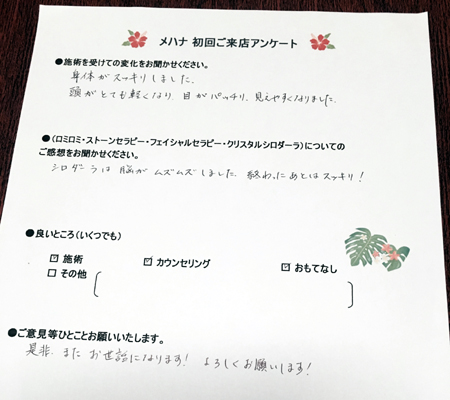 メハナ 初回ご来店アンケート
●施術を受けての変化をお聞かせください。
身体がスッキリしました。
頭がとても軽くなり、目がパッチリ、見えやすくなりました。
●(ロミロミ・ストーンセラピー・フェイシャルセラピー・クリスタルシロダーラ)についての
ご感想をお聞かせください。
シロダーラは脳がムズムズしました 終わったあとはスッキリ!
●良いところ(いくつでも)
☑ 施術 ☑ カウンセリング ☑ おもてなし
□ その他
●ご意見等ひとことお願いいたします。
是非、また お世話になります! よろしくお願いします!